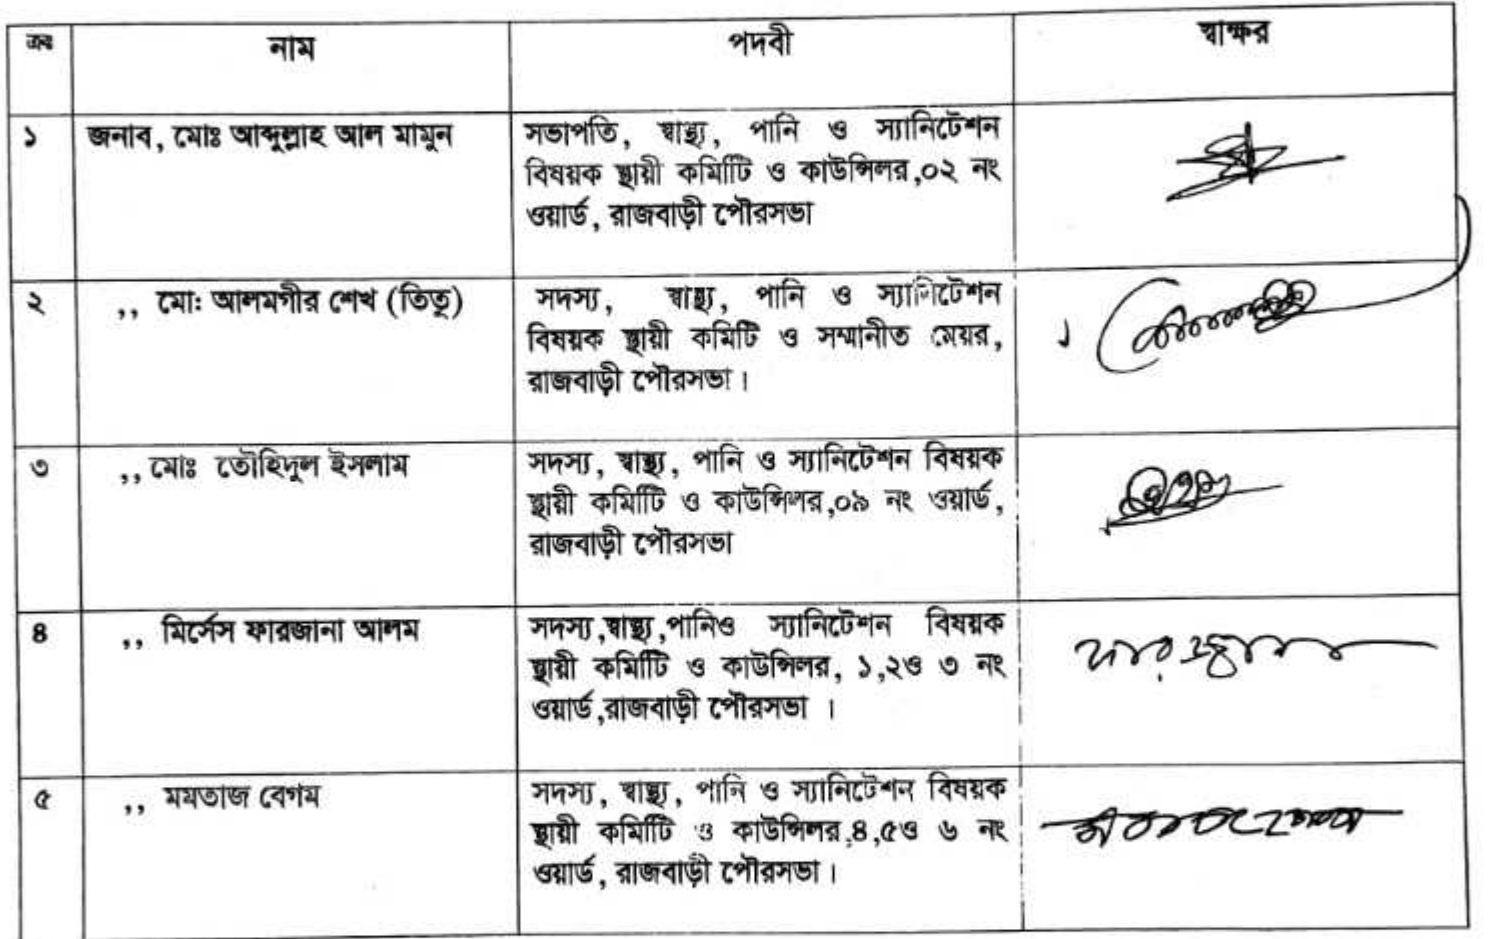 ক্রঃ নাম পদবী স্বাক্ষর
১ জনাব, মোঃ আব্দুল্লাহ আল মামুন সভাপতি, স্বাস্থ্য, পানি ও স্যানিটেশন
বিষয়ক স্থায়ী কমিটি ও কাউন্সিলর,০২ নং
ওয়ার্ড, রাজবাড়ী পৌরসভা
২ ,, মো: আলমগীর শেখ (তিতু) সদস্য, স্বাস্থ্য, পানি ও স্যানিটেশন
বিষয়ক স্থায়ী কমিটি ও সম্মানীত মেয়র,
রাজবাড়ী পৌরসভা।
৩ ,, মোঃ তৌহিদুল ইসলাম সদস্য, স্বাস্থ্য, পানি ও স্যানিটেশন বিষয়ক
স্থায়ী কমিটি ও কাউন্সিলর,০৯ নং ওয়ার্ড,
রাজবাড়ী পৌরসভা
৪ ,, মির্সেস ফারজানা আলম সদস্য,স্বাস্থ্য,পানিও স্যানিটেশন বিষয়ক
স্থায়ী কমিটি ও কাউন্সিলর, ১,২ও ৩ নং
ওয়ার্ড,রাজবাড়ী পৌরসভা ।
ফারজানা
৫ ,, মমতাজ বেগম সদস্য, স্বাস্থ্য, পানি ও স্যানিটেশন বিষয়ক
স্থায়ী কমিটি ও কাউন্সিলর,৪,৫ও ৬ নং
ওয়ার্ড, রাজবাড়ী পৌরসভা।